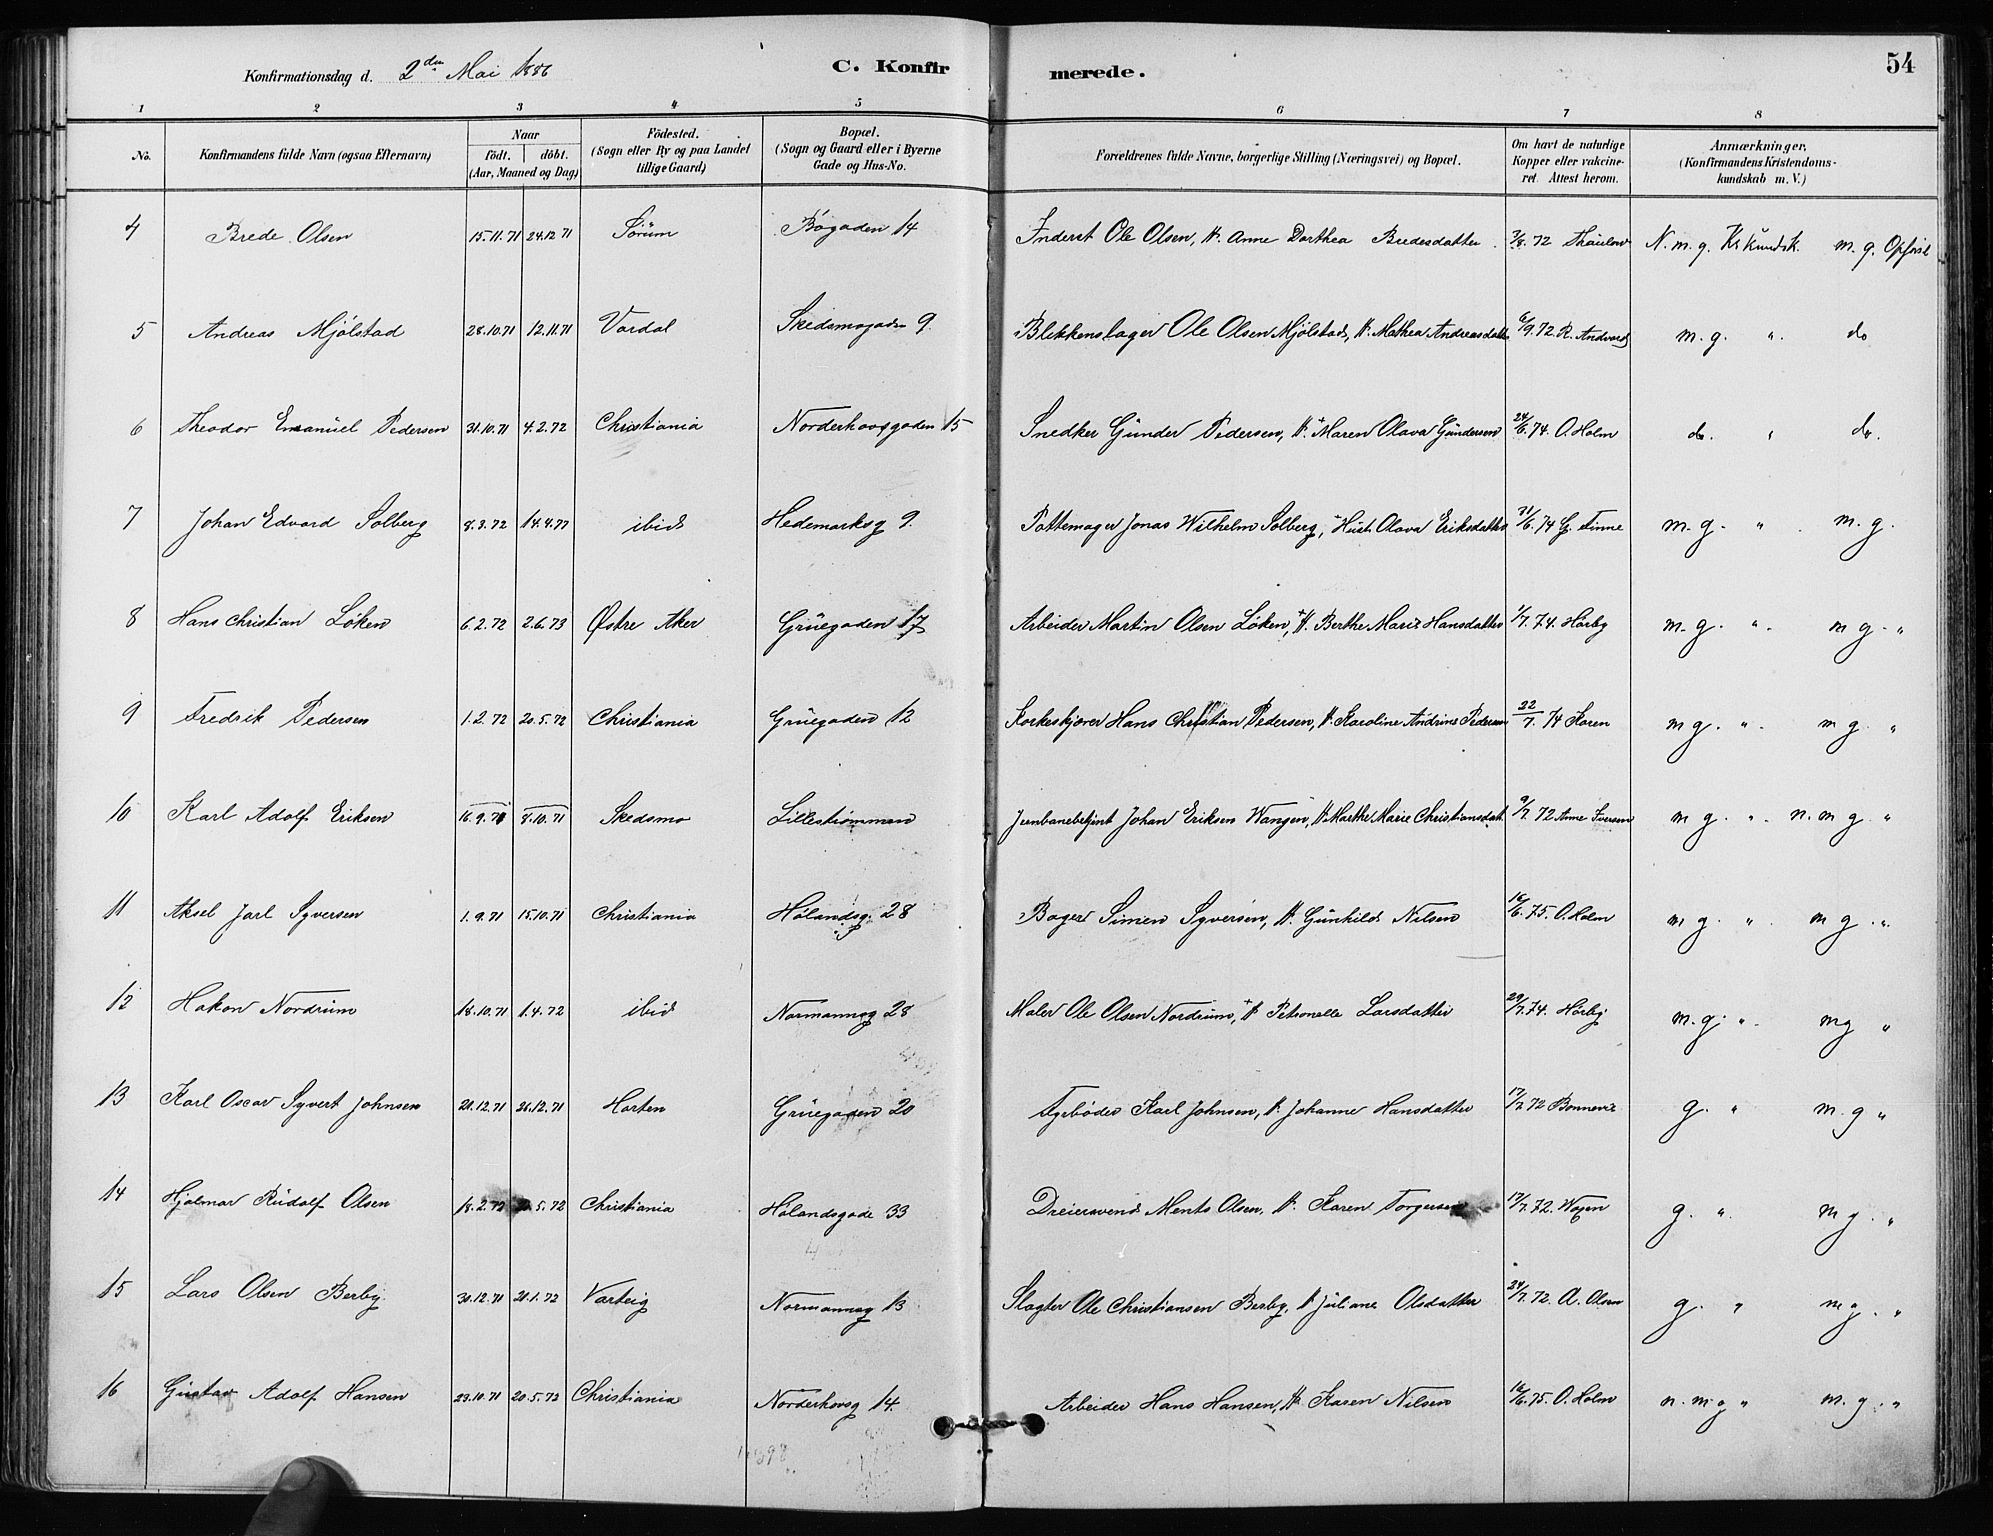 Konfirmationsdag d. 2den Mai 1886 C. Konfirmerede. 54
1 2 3 4 5 6 7 8
No. Konfirmandens fulde Navn (ogsaa Efternavn) Naar födt. döbt. (Aar, Maaned og Dag) Födested. (Sogn eller By og paa Landet tillige Gaard) Bopæl. (Sogn og Gaard eller i Byerne Gade og Hus-No. Forældrenes fulde Navne, borgerlige Stilling (Næringsvei) og Bopæl. Om havt de naturlige Kopper eller vakcineret. Attest herom. Anmærkninger, (Konfirmandens Kristendomskundskab m. V.)
4 Brede Olsen 15.11.71 24.12.71 Sørum Bøgaden 14 Inderst Ole Olsen, H. Anne Dorthea Bredesdatter 7/8.72 Thaulow N. m. g. Kr kundsk. m. g. Opførsl
5 Andreas Mjølstad 28.10.71 12.11.71 Vardal Skedsmogaden 9. Blikkenslager Ole Olsen Mjølstad, H. Mathea Andreasdatter 6/9.72 R. Andvord m. g. " do
6 Theodor Emanuel Pedersen 31.10.71 4.2.72 Christiania Norderhovsgaden 15 Snedker Gunder Pedersen, H. Maren Olava Gundersen 24/6.74. O. Holm do. " do.
7 Johan Edvard Solberg 8.3.72 14.4.77 ibid Hedemarksg 9. Pottemager Jonas Wilhelm Solberg, Hust. Olava Eriksdatter 21/6.74 G. Finne m. g. " m. g.
8 Hans Christian Løken 6.2.72 2.6.73 Østre Aker Grüegaden 17 Arbeider Martin Olsen Løken, + H. Berthe Marie Hansdatter 1/7.74. Hørby m. g. " m g. "
9 Fredrik Pedersen 1.2.72 20.5.72 Christiania Grüegaden 12 Korkeskjærer Hans Christian Pedersen, H. Karoline Andrine Pedersen 22/7.74 Karen m g. " m g. "
10 Karl Adolf Eriksen 16.9.71 8.10.71 Skedsmo Lillestrømmen Jernbanebetjent Johan Eriksen Wangen, H. Marthe Marie Christiansdat. 9/7 72 Anne Iversen m g. " n. m g. "
11 Aksel Jarl Syversen 1.9.71 15.10.71 Christiania Hølandsg. 28 Bager Simen Syversen, H. Gunhild Nilsen 16/6.75. O. Holm m g. " m g. "
12 Hakon Nordrum 18.10.71 1.4.72 ibid Normannsg 28 Maler Ole Olsen Nordrum, + H. Petronelle Larsdatter 29/7.74. Hørby m. g. " m g "
13 Karl Oscar Syvert Johnsen 21.12.71 26.12.71 Horten Grüegaden 20 Fyrbøder Karl Johnsen, H. Johanne Hansdatter 17/7 72 Bonnevie g. " m. g "
14 Hjalmar Rudolf Olsen 18.2.72 .5.72 Christiania Hølandsgade 33 Dreiersvend Ments Olsen, H. Karen Torgersen 17/7.72. Wogen g. " m g. "
15 Lars Olsen Berby 30.12.71 21.1.72 Varteig Normannsg 13 Slagter Ole Christiansen Berby, H Juliane Olsdatter 24/7.72. A. Olsen g. " m g. "
16 Gustav Adolf Hansen 23.10.71 20.5.72 Christiania Norderhovsg 14. Arbeider Hans Hansen, H. Karen Nilsen 16/6.75. O. Holm n. m g " m. g. "